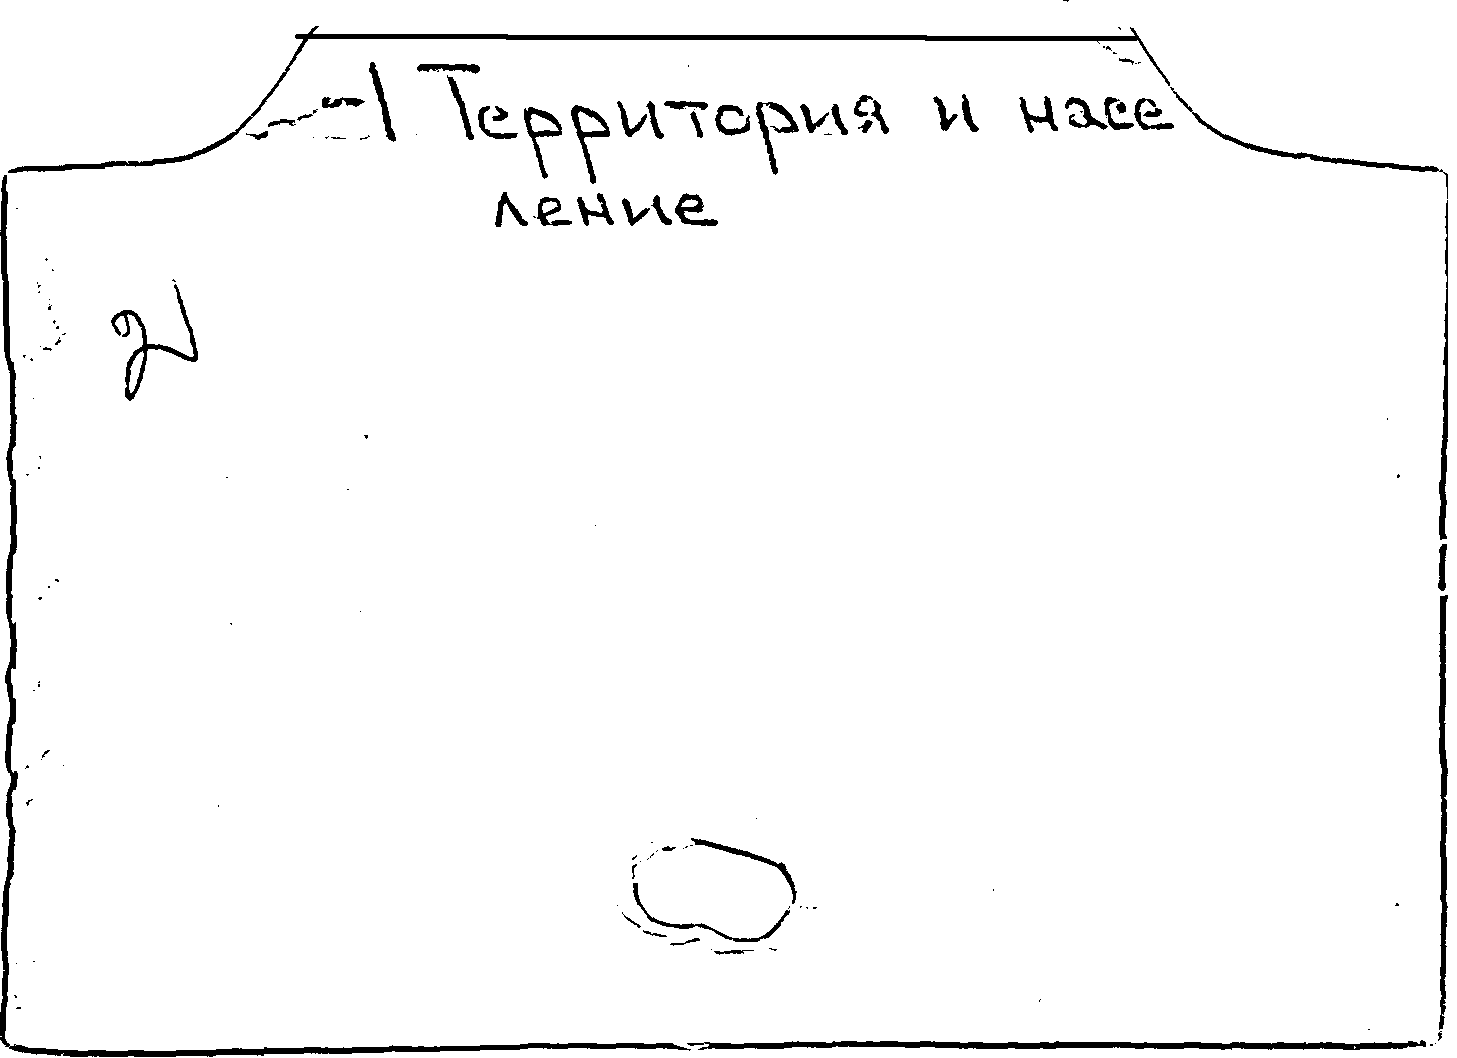 1 Территория и насе
ление